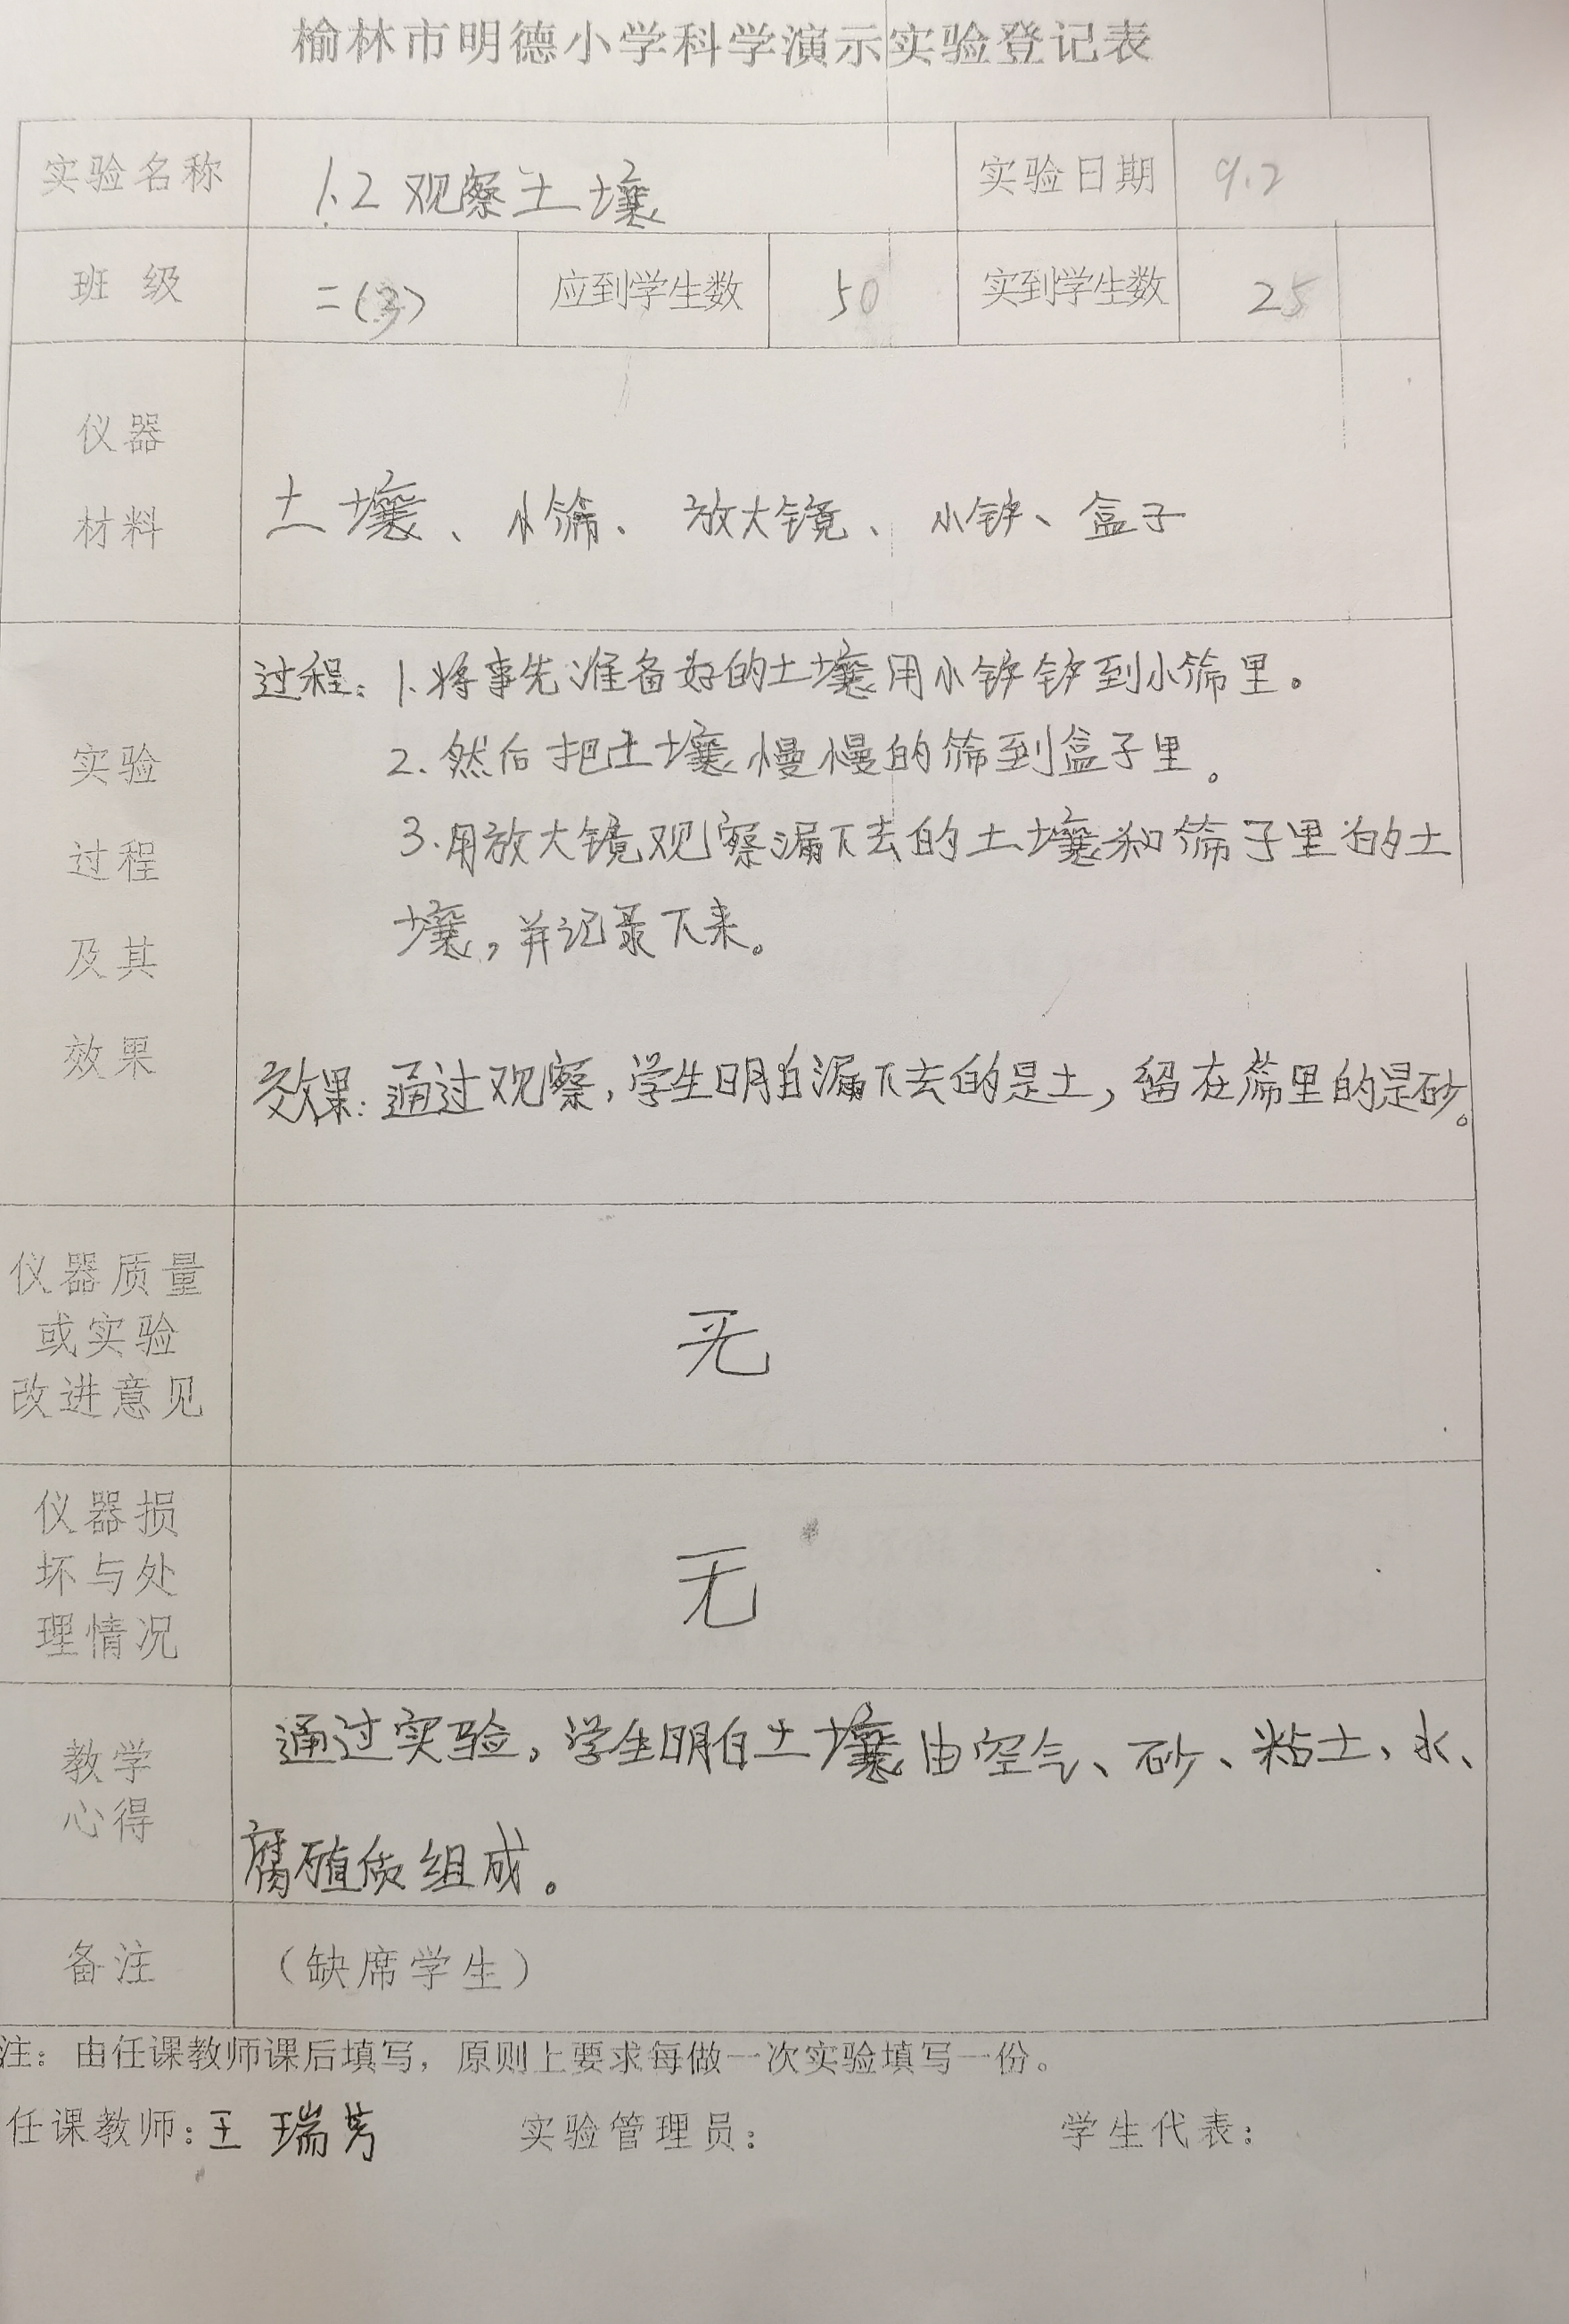 榆林市明德小学科学演示实验登记表
实验名称 1.2 观察土壤 实验日期 9.2
班 级 二(3) 应到学生数 50 实到学生数 25
仪器
材料
土壤、小筛、放大镜、小铲、盒子
实验
过程
及其
效果
过程:1.将事先准备好的土壤用小铲铲到小筛里。
2.然后把土壤慢慢的筛到盒子里。
3.用放大镜观察漏下去的土壤和筛子里的土
壤,并记录下来。
效果:通过观察,学生明白漏下去的是土,留在筛里的是砂。
仪器质量
或实验
改进意见
无
仪器损
坏与处
理情况
无
教学
心得
通过实验,学生明白土壤由空气、砂、粘土、水、
腐殖质组成。
备注 (缺席学生)
注:由任课教师课后填写,原则上要求每做一次实验填写一份。
任课教师:王瑞芳 实验管理员: 学生代表: